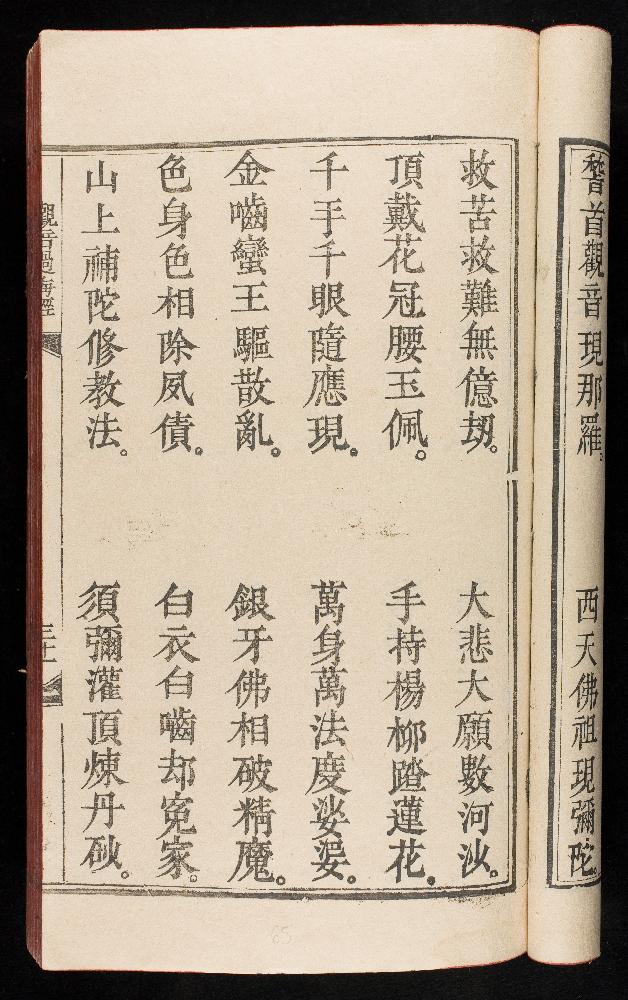 稽首觀音現那羅。 西天佛祖現彌陀。
救苦救難無億刼。 大悲大願數河沙。
頂戴花冠腰玉佩。 手持楊柳踏蓮花。
千手千眼隨應現。 萬身萬法度娑婆。
金嚙蠻王驅散亂。 銀牙佛相破精魔。
色身色相除夙債。 白衣白嚙却寃家。
山上補陀修教法。 須彌灌頂煉丹砂。
觀音過海經
65